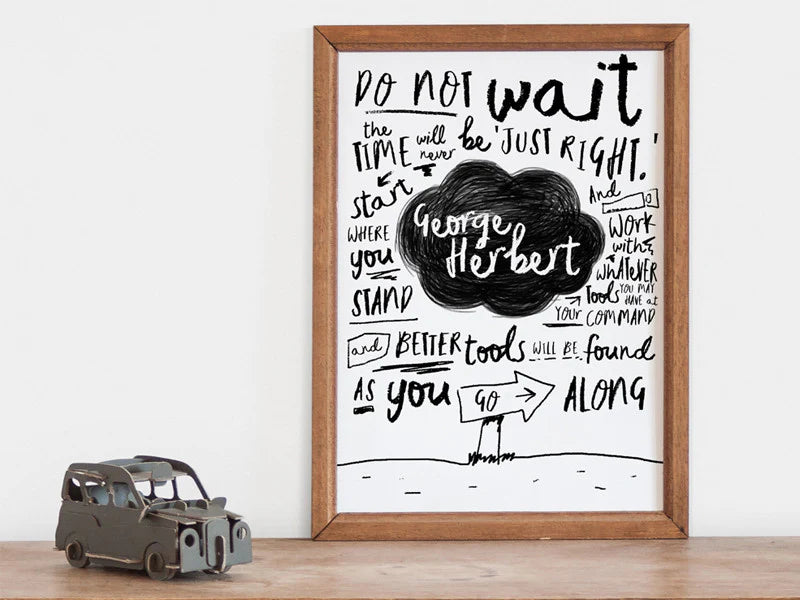 DO NOT wait
the TIME will never be 'JUST RIGHT.'
start
WHERE
you
STAND
George
Herbert
And
WORK
with
WHATEVER
Tools YOU MAY HAVE at
YOUR COMMAND
and BETTER tools WILL BE found
AS you GO ALONG